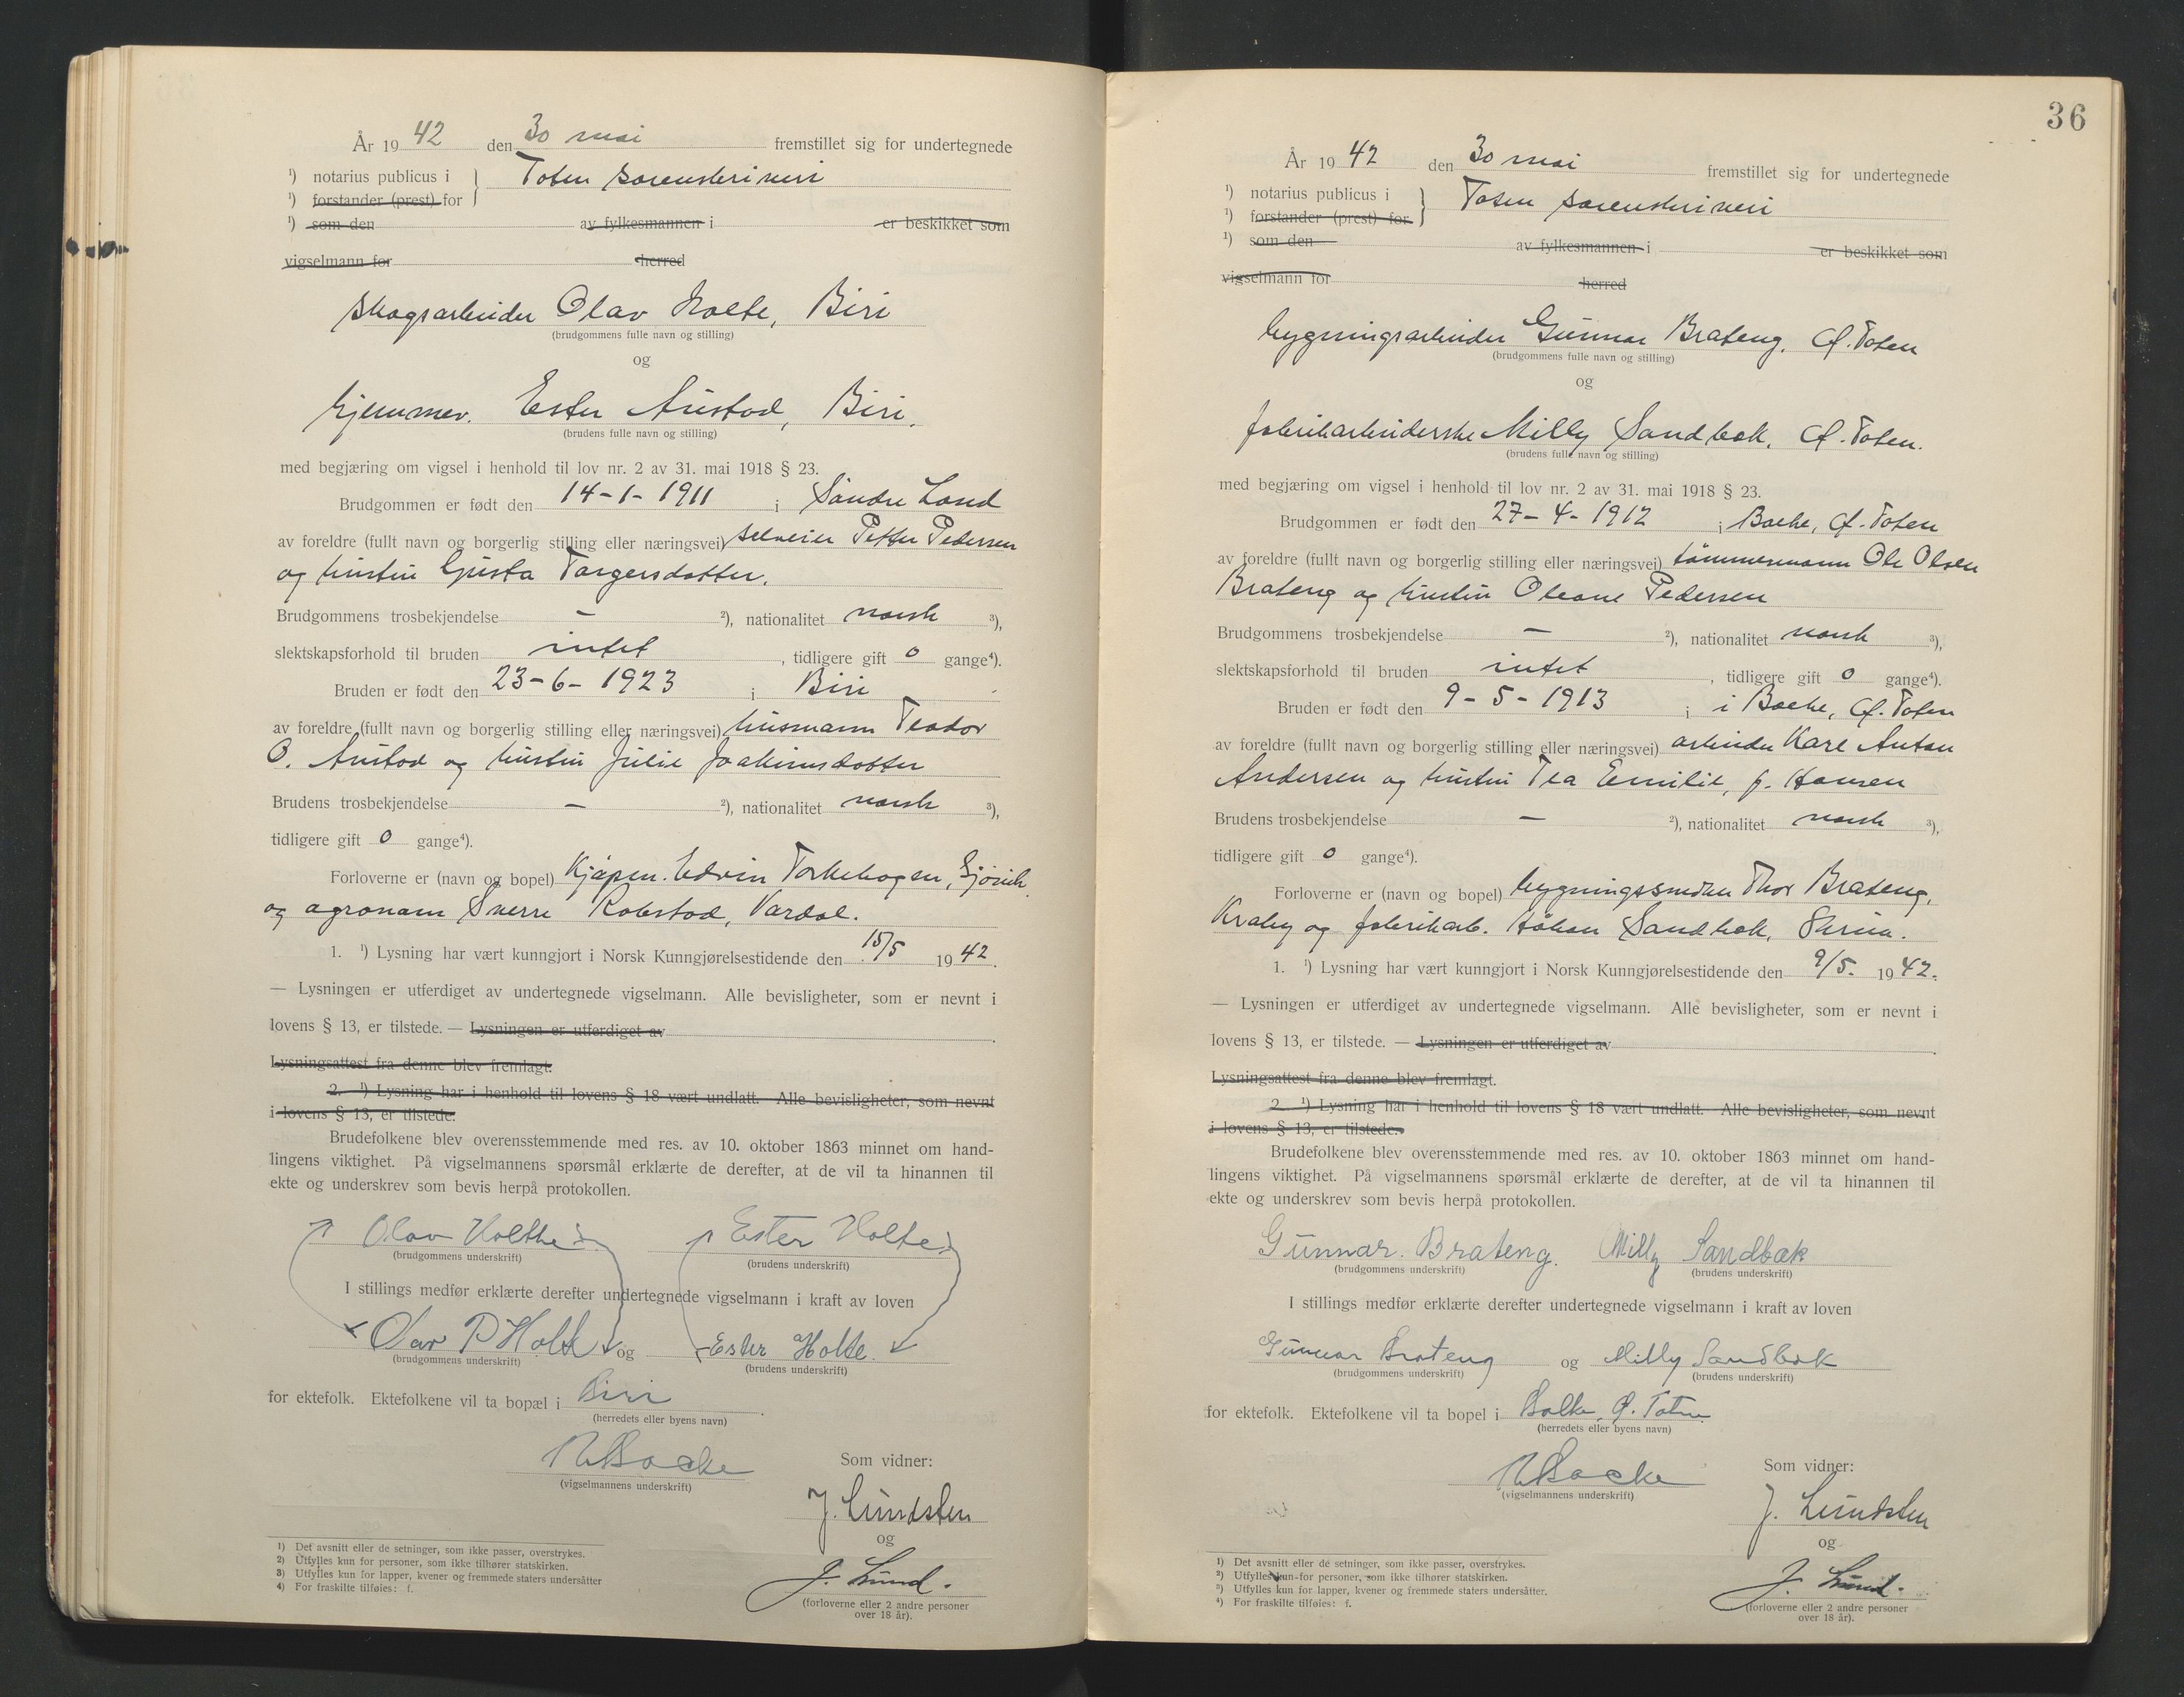 År 1942 den 30 mai fremstillet sig for undertegnede
¹) notarius publicus i } Toten sorenskriveri
¹) forstander (prest) for
¹) som den av fylkesmannen i er beskikket som
vigselmann for herred
skogsarbeider Olav Holte, Biri
(brudgommens fulle navn og stilling)
og
hjemmev. Ester Austad, Biri.
(brudens fulle navn og stilling)
med begjæring om vigsel i henhold til lov nr. 2 av 31. mai 1918 § 23.
Brudgommen er født den 14-1-1911 i Søndre Land
av foreldre (fullt navn og borgerlig stilling eller næringsvei) selveier Petter Pedersen
og hustru Gusta Torgersdatter.
Brudgommens trosbekjendelse – ²), nationalitet norsk ³),
slektskapsforhold til bruden intet, tidligere gift 0 gange⁴).
Bruden er født den 23-6-1923 i Biri
av foreldre (fullt navn og borgerlig stilling eller næringsvei) husmann Teodor
O. Austad og hustru Julie Joakimsdatter
Brudens trosbekjendelse – ²), nationalitet norsk ³),
tidligere gift 0 gange⁴).
Forloverne er (navn og bopel) Kjøpm. Edvin Torkehagen, Gjøvik
og agronom Sverre Kolstad, Vardal.
1. ¹) Lysning har vært kunngjort i Norsk Kunngjørelsestidende den 15/5 1942.
— Lysningen er utferdiget av undertegnede vigselmann. Alle bevisligheter, som er nevnt i
lovens § 13, er tilstede. — Lysningen er utferdiget av
Lysningsattest fra denne blev fremlagt.
2. ¹) Lysning har i henhold til lovens § 18 vært undlatt. Alle bevisligheter, som nevnt
i lovens § 13, er tilstede.
Brudefolkene blev overensstemmende med res. av 10. oktober 1863 minnet om hand-
lingens viktighet. På vigselmannens spørsmål erklærte de derefter, at de vil ta hinannen til
ekte og underskrev som bevis herpå protokollen.
Olav Holthe Ester Holte
(brudgommens underskrift) (brudens underskrift)
I stillings medfør erklærte derefter undertegnede vigselmann i kraft av loven
Olav P Holte og Ester Holte
(brudgommens underskrift) (brudens underskrift)
for ektefolk. Ektefolkene vil ta bopæl i Biri
(herredets eller byens navn)
(vigselmannens underskrift)
Som vidner:
J. Lundsten
og
J. Lund.
(forloverne eller 2 andre personer
over 18 år).
1) Det avsnitt eller de setninger, som ikke passer, overstrykes.
2) Utfylles kun for personer, som ikke tilhører statskirken.
3) Utfylles kun for lapper, kvener og fremmede staters undersåtter
4) For fraskilte tilføies: f.
36
År 1942 den 30 mai fremstillet sig for undertegnede
¹) notarius publicus i } Toten sorenskriveri
¹) forstander (prest) for
¹) som den av fylkesmannen i er beskikket som
vigselmann for herred
bygningsarbeider Gunnar Brateng, Ø. Toten
(brudgommens fulle navn og stilling)
og
fabrikarbeiderske Milly Sandbæk, Ø. Toten.
(brudens fulle navn og stilling)
med begjæring om vigsel i henhold til lov nr. 2 av 31. mai 1918 § 23.
Brudgommen er født den 27-4-1912 i Balke, Ø. Toten
av foreldre (fullt navn og borgerlig stilling eller næringsvei) tømmermann Ole Olsen
Brateng og hustru Oleane Pedersen
Brudgommens trosbekjendelse – ²), nationalitet norsk ³),
slektskapsforhold til bruden intet, tidligere gift 0 gange⁴).
Bruden er født den 9-5-1913 i i Balke, Ø. Toten
av foreldre (fullt navn og borgerlig stilling eller næringsvei) arbeider Karl Anton
Andersen og hustru Tea Emilie, f. Hansen
Brudens trosbekjendelse – ²), nationalitet norsk ³),
tidligere gift 0 gange⁴).
Forloverne er (navn og bopel) bygningssnekker Thor Brateng,
Kraby og fabrikarb. Håkon Sandbæk, Skreia.
1. ¹) Lysning har vært kunngjort i Norsk Kunngjørelsestidende den 9/5. 1942.
— Lysningen er utferdiget av undertegnede vigselmann. Alle bevisligheter, som er nevnt i
lovens § 13, er tilstede. — Lysningen er utferdiget av
Lysningsattest fra denne blev fremlagt.
2. ¹) Lysning har i henhold til lovens § 18 vært undlatt. Alle bevisligheter, som nevnt
i lovens § 13, er tilstede.
Brudefolkene blev overensstemmende med res. av 10. oktober 1863 minnet om hand-
lingens viktighet. På vigselmannens spørsmål erklærte de derefter, at de vil ta hinannen til
ekte og underskrev som bevis herpå protokollen.
Gunnar. Brateng. Milly Sandbæk
(brudgommens underskrift) (brudens underskrift)
I stillings medfør erklærte derefter undertegnede vigselmann i kraft av loven
Gunnar Brateng og Milly Sandbæk
(brudgommens underskrift) (brudens underskrift)
for ektefolk. Ektefolkene vil ta bopel i Balke, Ø. Toten
(herredets eller byens navn)
(vigselmannens underskrift)
Som vidner:
J. Lundsten
og
J. Lund.
(forloverne eller 2 andre personer
over 18 år).
¹) Det avsnitt eller de setninger, som ikke passer, overstrykes.
²) Utfylles kun for personer, som ikke tilhører statskirken.
³) Utfylles kun for lapper, kvener og fremmede staters undersåtter.
⁴) For fraskilte tilføies: f.